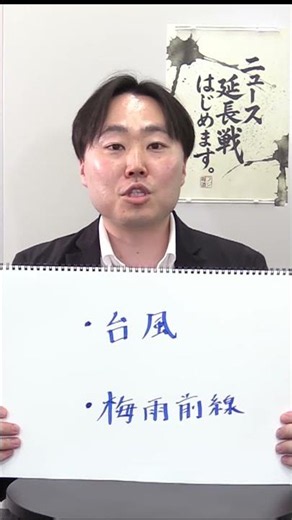 ニュース
延長戦
はじめます。
・台風
・梅雨前線